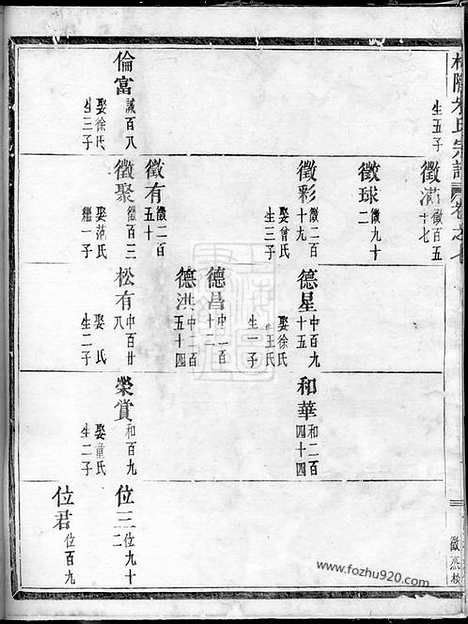 氏宗譜 卷之七
生五子
徵滿 徵百五十七
徵球 徵九十二
徵彩 徵二百十九
娶曾氏
生三子
徵有 徵二百五十
倫富 議百八
娶徐氏
生三子
徵聚 徵百三
娶范氏
繼一子
德星 中百九十五
娶徐氏
王氏
生一子
德昌 中一百十二
德洪 中二百五十四
松有 中百廿八
娶 氏
生二子
和華 和二百四十四
榮賞 和百九
娶童氏
生二子
位三 位九十二
位君 位百九
www.fozhu920.com